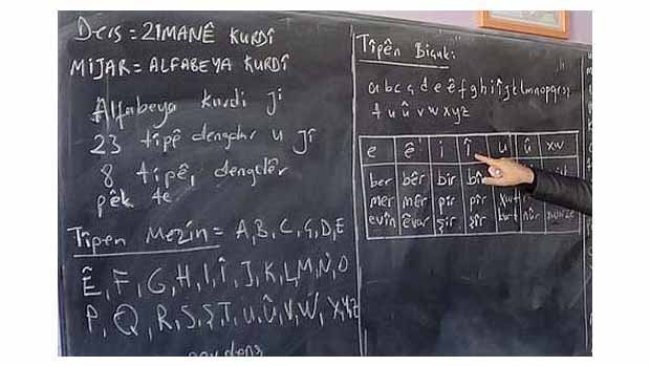 Ders = ZIMANÊ KURDÎ
MIJAR = ALFABEYA KURDÎ
Alfabeya kurdi ji
23 tîpê dengdar u Jî
8 tîpê, dengdêr
pêk te
Tîpen Mezin = A, B, C, Ç, D, E
Ê, F, G, H, I, Î, J, K, L, M, N, O
P, Q, R, S, Ş, T, U, Û, V, W, X, Y, Z
Tîpên Biçuk:
a b c ç d e ê f g h i î j k l m n o p q r s ş
t u û v w x y z
e ê i î u û xw
ber bêr bir bîr
mer mêr pir pîr
evîn êvar şir şîr kurt nûr